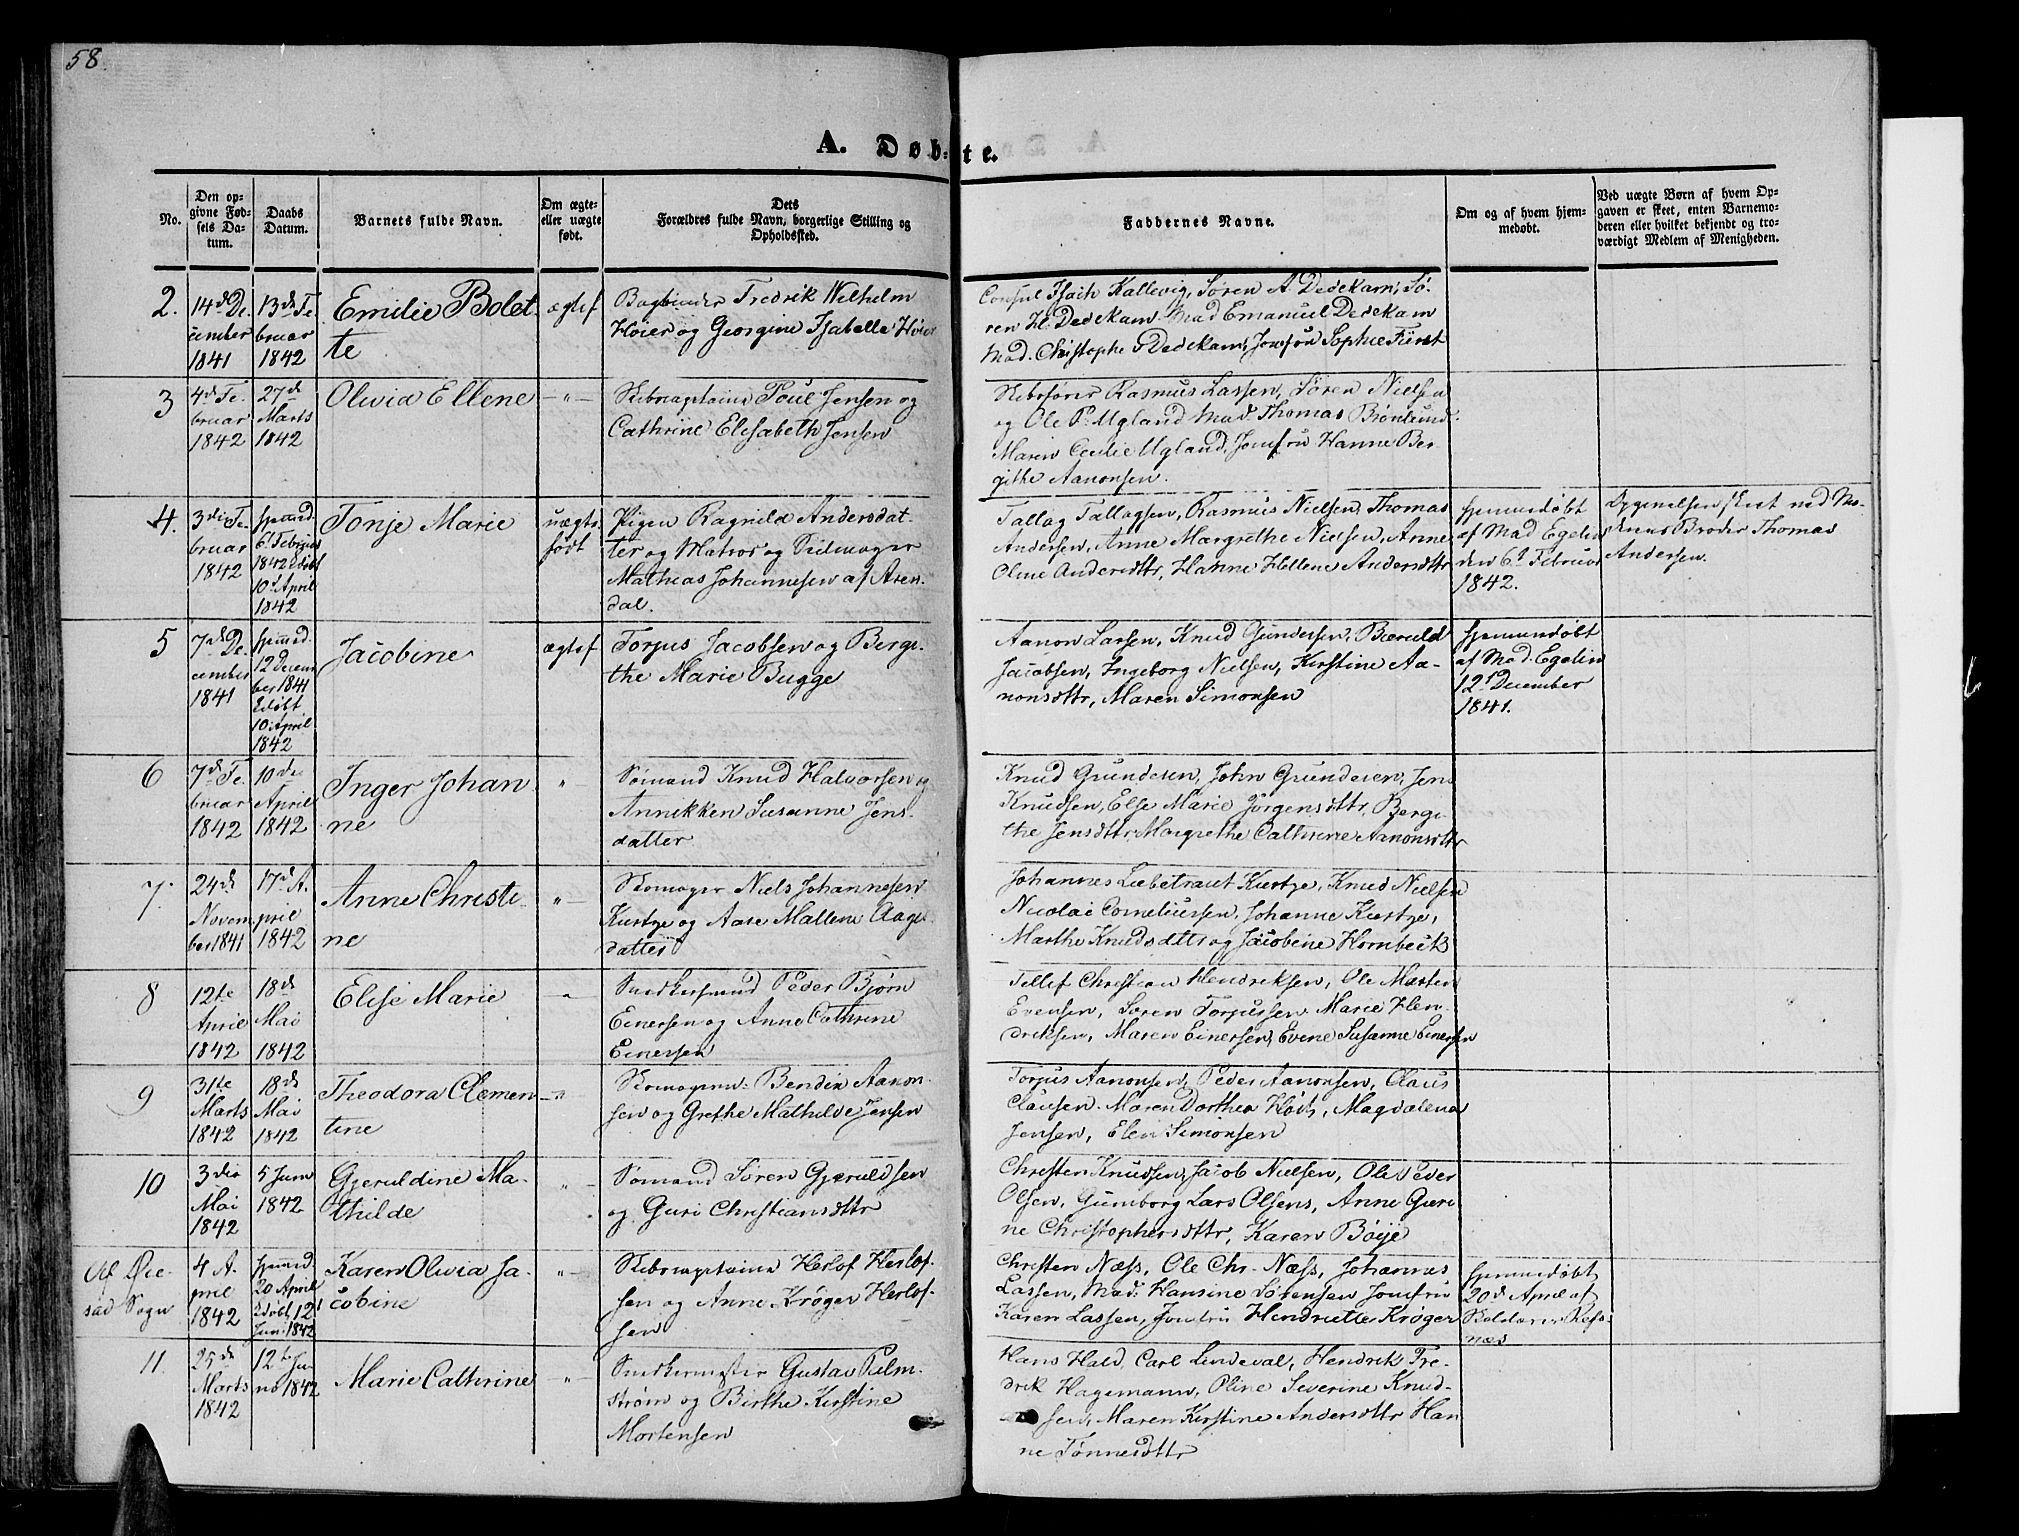 58.
A. Døbte.
No.
Den opgivne Fødsels Datum.
Daabs Datum.
Barnets fulde Navn.
Om ægte- eller uægte født.
Dets Forældres fulde Navn, borgerlige Stilling og Opholdssted.
Faddernes Navne.
Om og af hvem hjemmedøbt.
Ved uægte Børn af hvem Opgaven er skeet, enten Barnemoderen eller hvilket bekjendt og troværdigt Medlem af Menigheden.
2.
14de De-
cember
1841
13de Fe
bruar
1842
Emilie Bolet-
te
ægtef
Bogbinder Fredrik Wilhelm
Høier og Georgine Isabelle Høier
Consul Isach Kallevig, Søren A. Dedekam, Sø-
ren H. Dedekam. Mad Emanuel Dedekam
Mad. Christophe Dedekam, Jomfru Sophie Fürst
3
4de Fe
bruar
1842
27de
Marts
1842
Olivia Ellene
— " —
Skibscaptaine Poul Jensen og
Cathrine Elisabeth Jensen
Skibsfører Rasmus Lassen, Søren Nielsen
og Ole P. Ugland Mad. Thomas Brönlund
Maren Cecilie Ugland, Jomfru Hanne Ber-
githe Aanonsen.
4.
3die Fe
bruar
1842
hjemmd.
6t Februar
1842 Edöbt
10de April
1842
Tonje Marie
uægte
født
Pigen Ragnild Andersdat-
ter og Matros og Seilmager
Mathias Johannesen af Aren-
dal.
Tallag Tallagsen, Rasmus Nielsen, Thomas
Andersen, Anne Margrethe Nielsen, Anne
Oline Andersdttr, Hanne Hellene Andersdttr
hjemmedøbt
af Mad Egelin
den 6t Februar
1842.
Opgivelsen skeet ved Mo-
derens Broder Thomas
Andersen.
5
7de De-
cember
1841
hjemmd.
12 Decem
ber 1841
Edöbt
10 April
1842
Jacobine
ægtef
Torjus Jacobsen og Bergi-
the Marie Bugge
Aanon Larsen, Knud Gundersen, Bæruld
Jacobsen, Ingeborg Nielsen, Kirstine Aa-
nonsdttr, Maren Simonsen
hjemmedøbt
af Mad. Egelin
12t December
1841.
6
7de Fe-
bruar
1842
10de
April
1842
Inger Johan
ne
"
Sømand Knud Halvorsen og
Annikken Susanne Jens-
datter
Knud Gundersen, John Gundersen, Jens
Knudsen, Else Marie Jörgensdttr, Bergi-
the Jensdttr, Margrethe Cathrine Aanonsdttr
7.
24de
Novem
ber 1841
17de A.
pril
1842
Anne Christi-
ne
"
Skomager Niels Johannesen
Kiertze og Aase Mallene Aage-
datter
Johannes Liebetraut Kiertze, Knud Nielsen
Nicolai Corneliussen, Johanne Kiertze,
Marthe Knudsdttr og Jacobine Hornbeck
8
12te
April
1842
18de
Mai
1842
Elise Marie
"
Snedkersvend Peder Bjørn
Einersen og Anne Cathrine
Einersen
Tellef Christian Hendriksen, Ole Morten
Evensen, Søren Torjussen Marie Hen-
driksen, Maren Einersen, Evene Susanne Einersen
9
31te
Marts
1842
18de
Mai
1842
Theodora Clemen
tine
— " —
Skomagersv. Bendix Aanon-
sen og Grethe Mathilde Jensen
Torjus Aanonsen, Peder Aanonsen, Claus
Clausen. Maren Dorthea Holt, Magdalena
Jensen, Elen Simonsen
10
3die
Mai
1842
5 Juni
1842
Gjeruldine Ma-
thilde
"
Sømand Søren Gjeruldsen
og Guri Christiansdttr
Christen Knudsen, Jacob Nielsen, Ole Peder
Olsen, Gunnborg Lars Olsens, Anne Guri-
ne Christophersdttr, Karen Böije
Af Øie-
stad Sogn
4 A.
pril
1842
hjemmd.
20 April
Edöbt 12t
Juni 1842
Karen Olivia Ja-
cobine
"
Skibscaptaine Herlof Herlof-
sen og Anne Krøger Herlof-
sen
Christen Næss, Ole Chr. Næss, Johannes
Lassen, Mad: Hansine Sörensen Jomfru
Karen Lassen, Jomfru Hendriette Krøger
hjemmedøbt
20de April af
næs
11.
25de
Marts
1842
12te Ju-
ni 1842
Marie Cathrine
"
Snedkermester Gustav Palm-
strøm og Birthe Kirstine
Mortensen
Hans Hald, Carl Lindeval, Hendrik Fre-
drik Hagemann, Oline Severine Knud-
sen, Maren Kirstine Andersdttr Han
ne Tønnesdttr